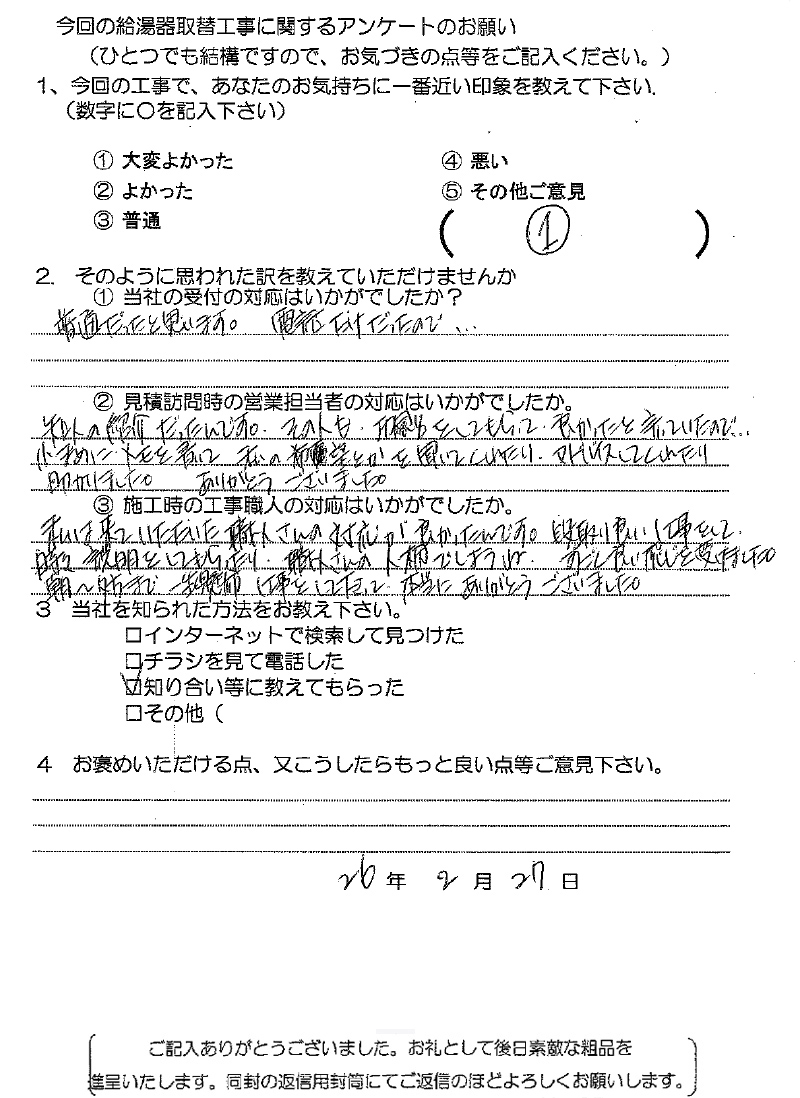 今回の給湯器取替工事に関するアンケートのお願い
（ひとつでも結構ですので、お気づきの点等をご記入ください。）
1、今回の工事で、あなたのお気持ちに一番近い印象を教えて下さい.
（数字に○を記入下さい）
① 大変よかった ④ 悪い
② よかった ⑤ その他ご意見
③ 普通 ( ① )
2. そのように思われた訳を教えていただけませんか
① 当社の受付の対応はいかがでしたか？
普通だったと思います。 電話だけだったので...
② 見積訪問時の営業担当者の対応はいかがでしたか。
知人の紹介だったんです。その人も、お願いをしてもらって、良かったと言っていたので...
メモを書いて 私の を聞いてくれたり、アドバイスしてくれたり
助かりました。 ありがとうございました。
③ 施工時の工事職人の対応はいかがでしたか。
来ていただいた職人さんの対応が良かったんです。段取り良い仕事をして、
説明をしてもらったり、職人さんの人柄でしょうね。 すごく良い感じを受けました。
朝〜夕方まで 一生懸命 仕事をして下さって、本当にありがとうございました。
3 当社を知られた方法をお教え下さい。
□インターネットで検索して見つけた
□チラシを見て電話した
☑知り合い等に教えてもらった
□その他（
4 お褒めいただける点、又こうしたらもっと良い点等ご意見下さい。
26年 2月 27日
ご記入ありがとうございました。お礼として後日素敵な粗品を
進呈いたします。同封の返信用封筒にてご返信のほどよろしくお願いします。